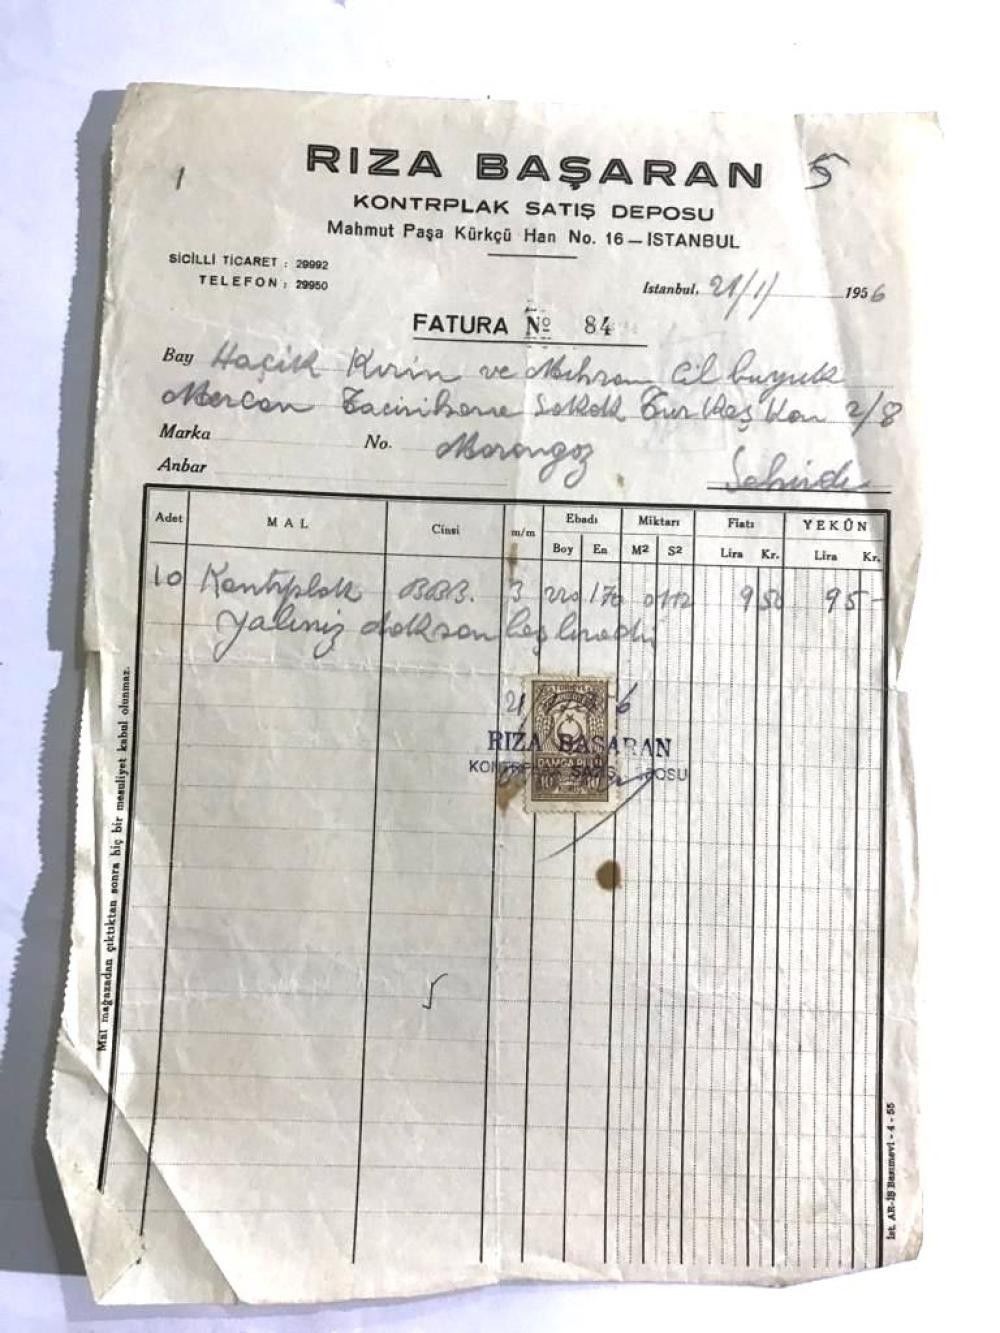 1
RIZA BAŞARAN
5
KONTRPLAK SATIŞ DEPOSU
Mahmut Paşa Kürkçü Han No. 16 — ISTANBUL
SİCİLLİ TİCARET : 29992
TELEFON : 29950
Istanbul, 21/1/ 1956
FATURA № 84
Bay Haçik Kırin ve Mihran Cil buyuk
Mercan Tacirihane Sokak Han 2/8
Marka
No.
Marangoz
Anbar
Adet MAL Cinsi m/m Ebadı Miktarı Fiatı YEKÛN
Boy En M2 S2 Lira Kr. Lira Kr.
10 Kontrplak BBB. 3 220 170 9 50 95 -
Yalınız doksan beş liradır
21 6
RIZA BAŞARAN
KONTRPLAK SATIŞ DEPOSU
DAMGA PULU
10
Mal mağazadan çıktıktan sonra hiç bir mesuliyet kabul olunmaz.
İst. AR-İŞ Basımevi - 4 - 55